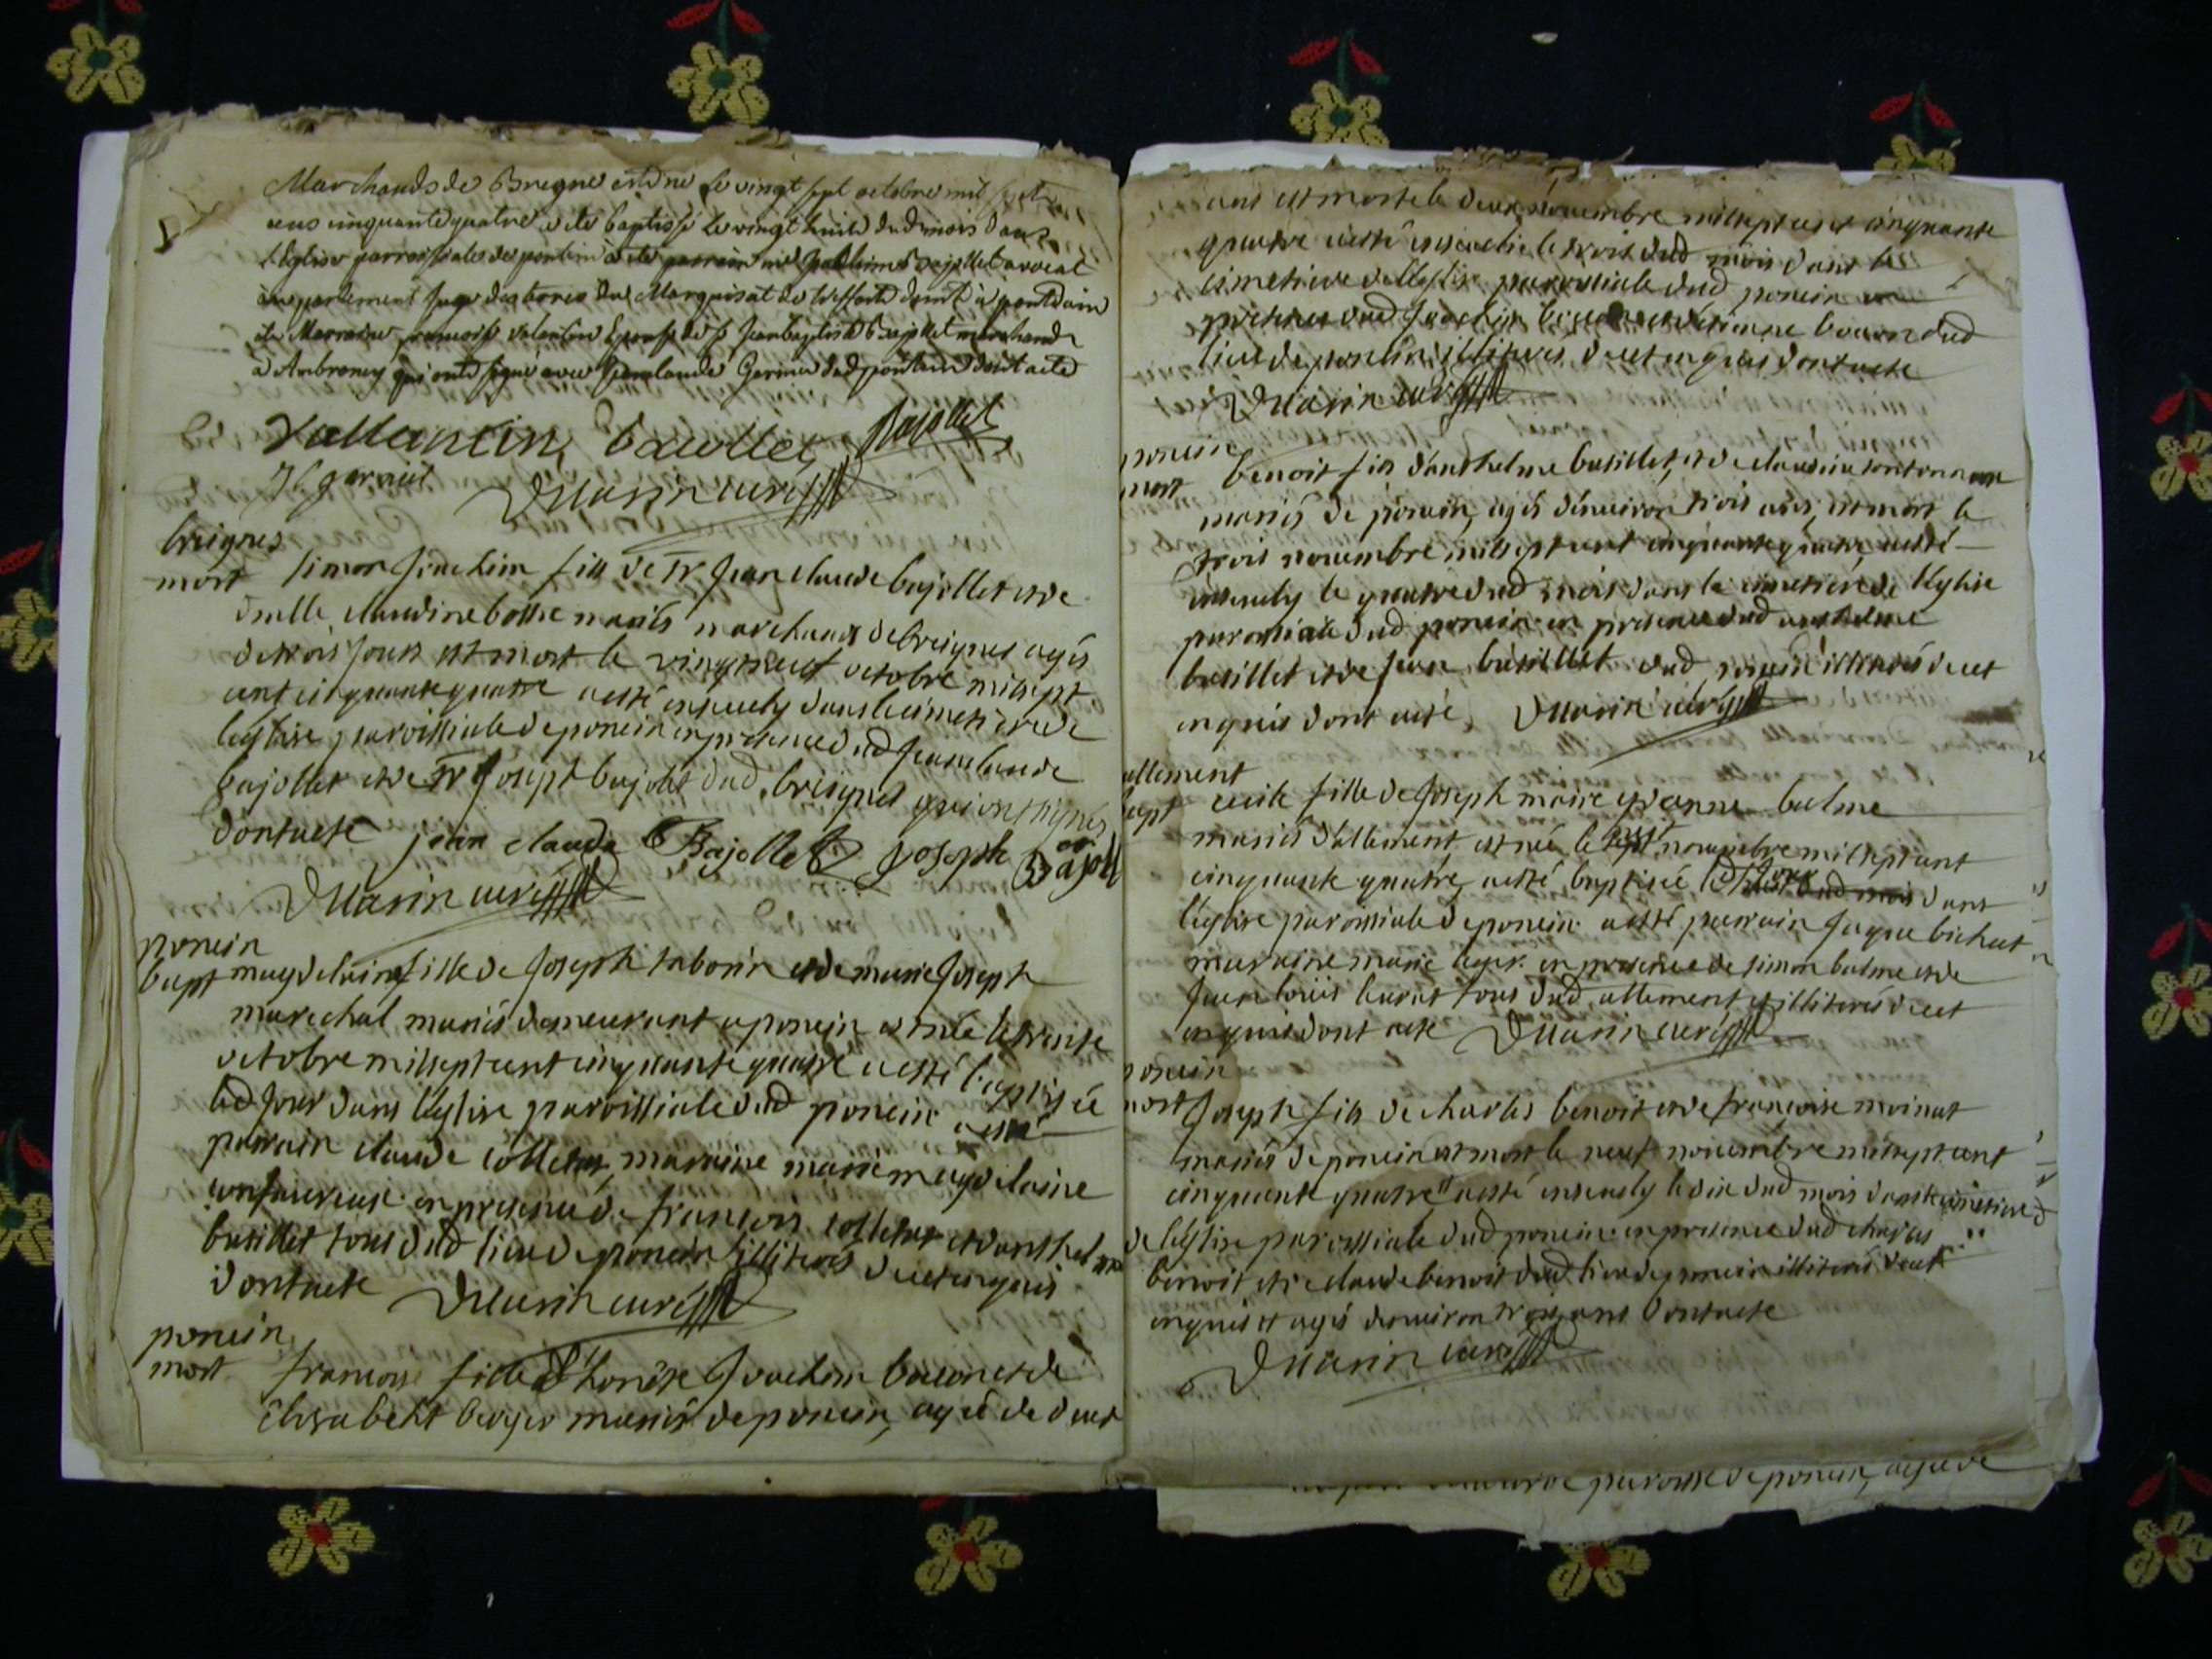 Marchands de Bregne est né le vingt sept octobre mil sept
cens cinquante quatre a ete baptissé le vingt huit dud mois dans
l'Eglise parroissiales de poncin a ete parrain Bajollet avocat
au parlement juge des terres du Marquisat de dem.t a pontdain
ete Marraine francoise valentin Epouse de s.r Jean baptiste Bajollet marchand
a Ambroney qui ont signé avec Jean claude Garnier dud poncin dont acte
Vallantin, baiollet, Bajollet
garnier
D Marin curé
breignes
mort Simon Joachim fils de Sr Jean claude bajollet et de
dmlle claudine bottie mariés marchands de breignes agés
de trois jours est mort le vingt neuf octobre mil sept
cent cinquante quatre a esté ensevely dans le cimetiere de
leglise paroissiale de poncin en presence dud Jean claude
bajollet et de Sr Joseph bajollet dud breignes qui ont signés
dont acte jean claude Bajollet Joseph Bajoll
D Marin curé
poncin
bapt magdelaine fille de Joseph taborin et de marie Joseph
marechal mariés demeurant a poncin est née le trente
octobre mil sept cent cinquante quatre a esté baptisée
led jour dans leglise paroissiale dud poncin a esté
parrain claude colletas, marraine marie magdelaine
confavreux en presence de francois colletas et danthelme
basillet tous dud lieu de poncin illiterés de ce enquis
dont acte D Marin curé
poncin
mort francoise fille d'honète Joachim bacon et de
Elisabeht berger mariés de poncin, agée de deux
ans est morte le deux novembre mil sept cent cinquante
quatre a esté ensevelie le trois dud mois dans le
cimetiere de l'eglise paroissiale dud poncin en
presence dud Joachim bacon et detienne bacon dud
lieu de poncin illiterés de ce enquis dont acte
D Marin curé
poncin
mort benoit fils danthelme basillet, et de claudine
mariés de poncin, agés d'environ trois ans, est mort le
trois novembre mil sept cent cinquante quatre a esté
ensevely le quatre dud mois dans le cimetiere de leglise
paroissiale dud poncin en presence dud anthelme
basillet et de jean basillet dud poncin illiterés de ce
enquis dont acte, D Marin curé
allement
bapt cecile fille de Joseph maire et danne balme
mariés d'allement, est née le sept novembre mil sept cent
cinquante quatre, a esté baptisée led jour dans
leglise paroissiale de poncin a esté parrain Jaque bichat
marraine marie leger en presence de simon balme et de
Jean louis tous dud allement, illiterés de ce
enquis dont acte D Marin curé
poncin
mort Joseph fils de charles benoit et de francoise moinat
mariés de poncin est mort le neuf novembre mil sept cent
cinquante quatre a esté ensevely le dix dud mois dans le cimetiere
de l'eglise paroissiale dud poncin en presence dud charles
benoit et de claude benoit dud lieu de poncin illiterés de ce
enquis et agés d'environ trois ans dont acte
D Marin curé
paroisse de poncin, agée de